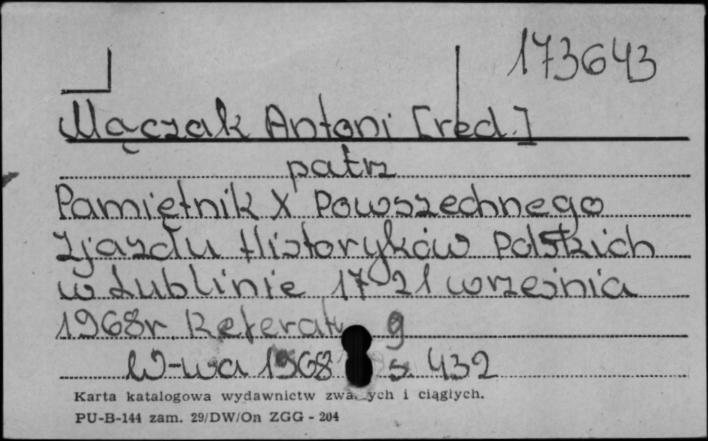 173643
Mączak Antoni [red.]
patrz
Pamiętnik X Powszechnego
Zjazdu Historyków Polskich
w Lublinie 17-21 września
1968r. Referaty
W-wa 1968 s. 432
Karta katalogowa wydawnictw zwartych i ciągłych.
PU-B-144 zam. 29/DW/On ZGG - 204